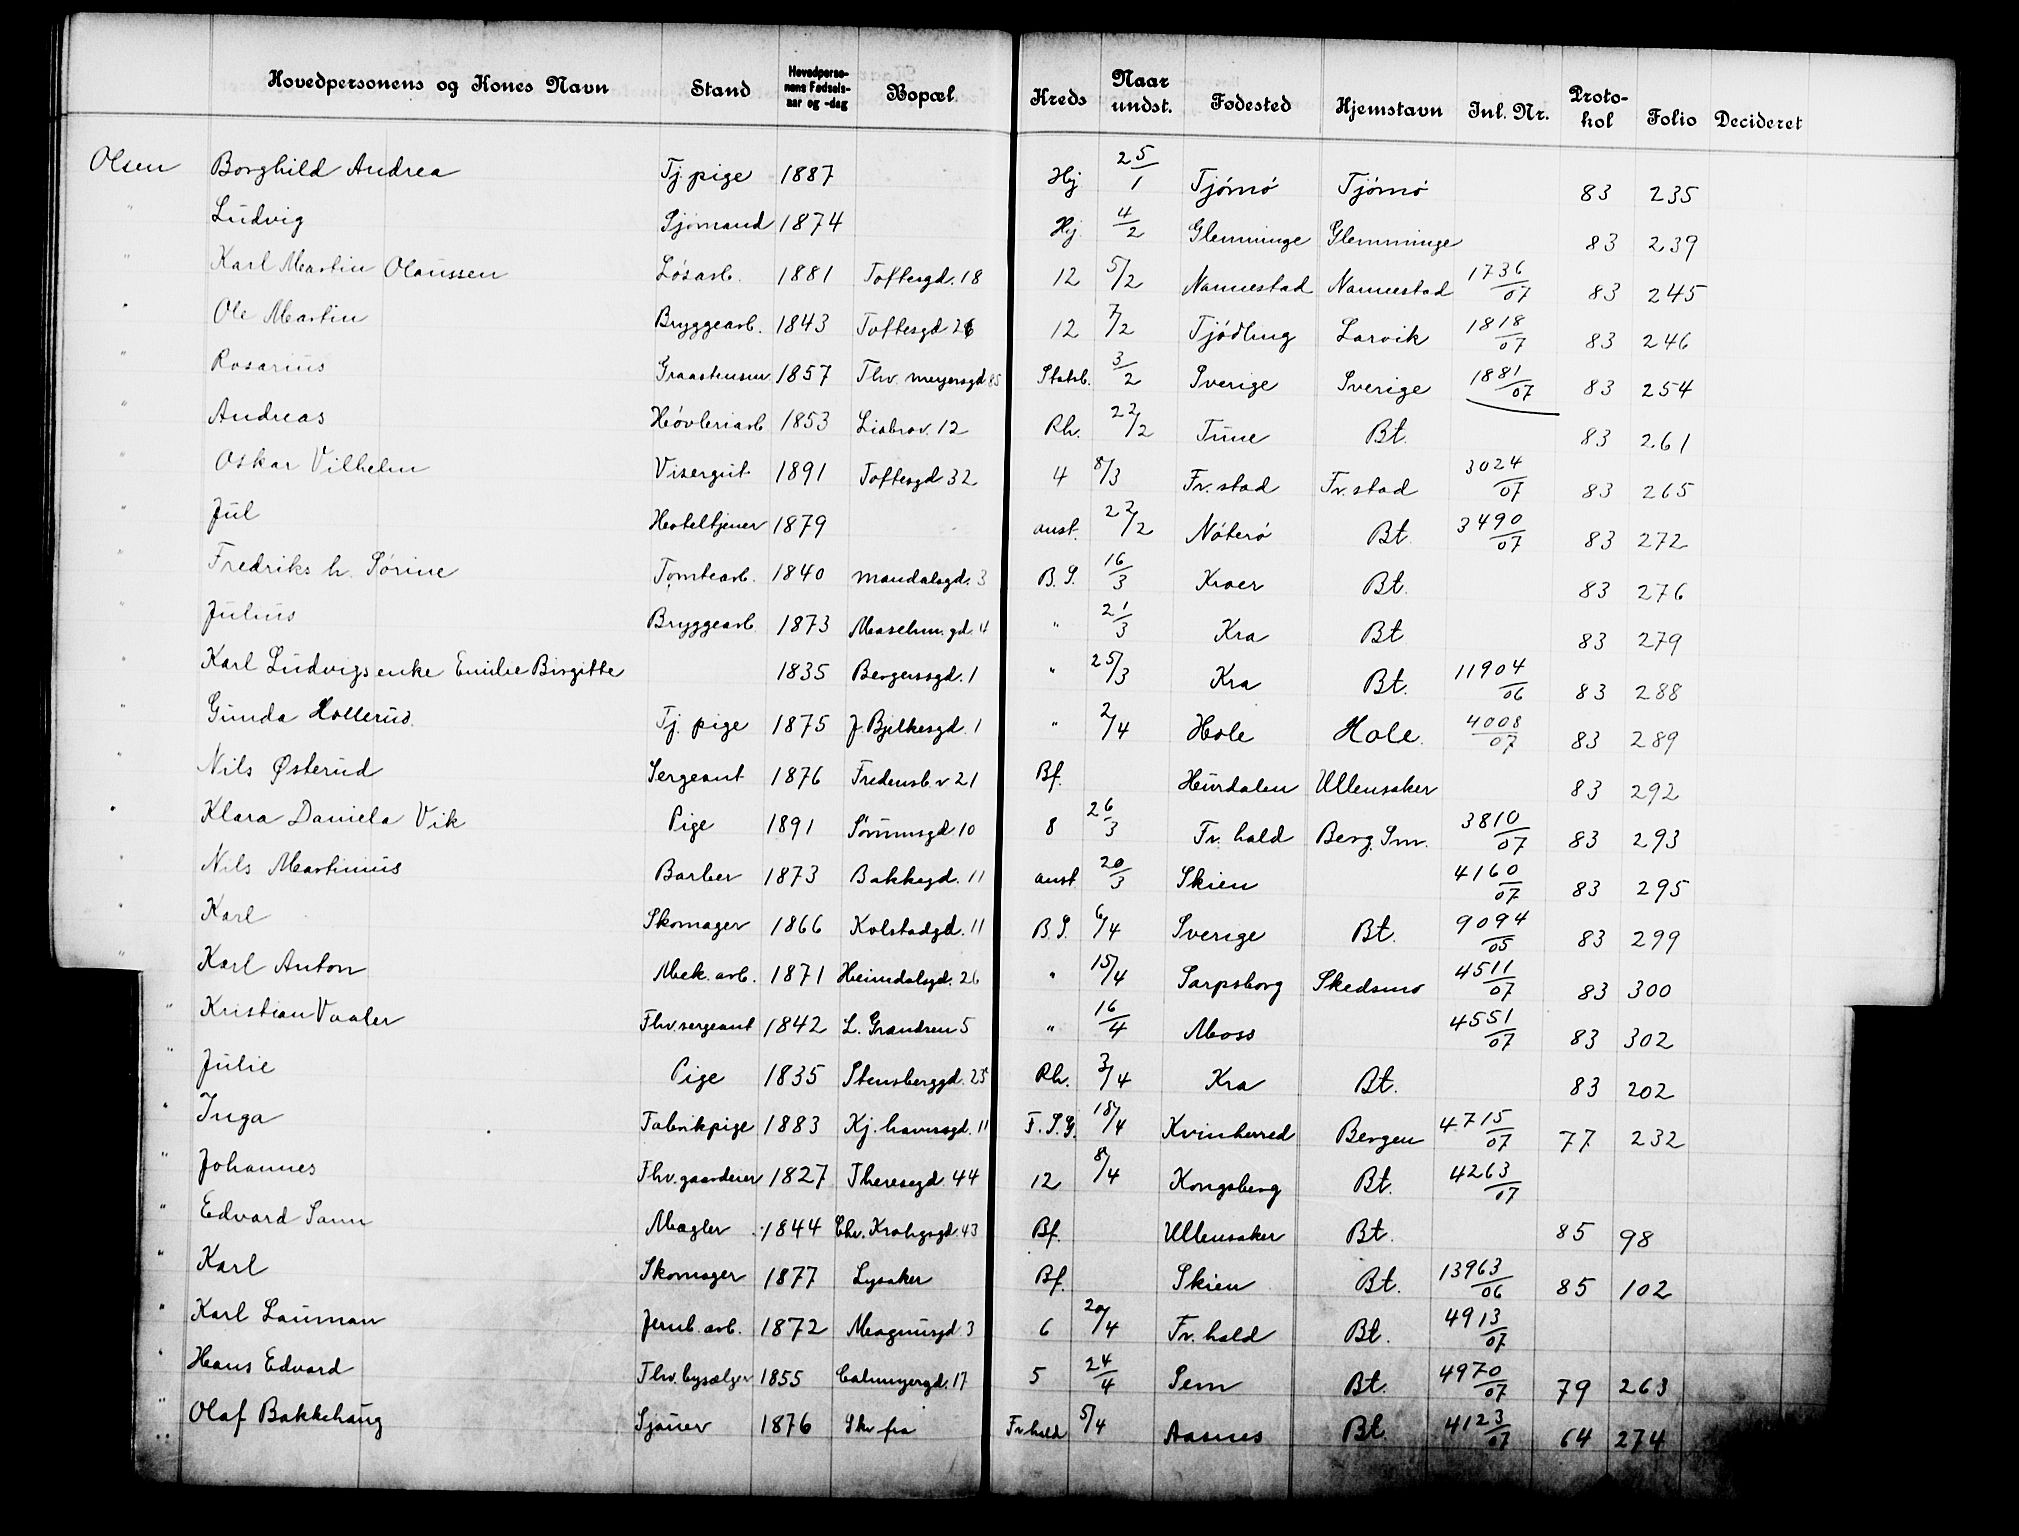 Hovedpersonens og Kones Navn Stand Hovedperso-nens Fødsels-aar og -dag Bopæl Kreds Naar undst. Fødested Hjemstavn Inl. Nr. Proto-kol Folio Decideret
Olsen Borghild Andrea Tj. pige 1887 Hj 25/1 Tjømø Tjømø 83 235
" Ludvig Sjømand 1874 Hj. 4/2 Glemminge Glemminge 83 239
" Karl Martin Olaussen Løsarb. 1881 Toftesgd. 18 12 5/2 Nannestad Nannestad 1736/07 83 245
" Ole Martin Bryggearb. 1843 Toftesgd 26 12 7/2 Tjødling Larvik 1818/07 83 246
" Rosarius 1857 Thv. meyersgd 85 Statsb. 3/2 Sverige Sverige 1881/07 83 254
" Andreas Høvleriarb 1853 Liabrov. 12 Rh. 22/2 Tune Bt. 83 261
" Oskar Vilhelm Visergut 1891 Toftesgd 32 4 8/3 Fr. stad Fr. stad 3024/07 83 265
" Jul Hoteltjener 1879 anst. 22/2 Nøterø Bt. 3490/07 83 272
" Fredriks h. Sørine Tomtearb. 1840 mandalsgd. 3 B. S. 16/3 Kroer Bt. 83 276
" Julius Bryggearb 1873 gd. 4 " 21/3 Kra Bt. 83 279
" Karl Ludvigs enke Emilie Birgitte 1835 Bergersgd. 1 " 25/3 Kra Bt. 11904/06 83 288
" Gunda Hollerud. Tj. pige 1875 J. Bjelkesgd. 1 " 2/4 Hole Hole. 4008/07 83 289
" Nils Østerud Sergeant 1876 Fredensb. v 21 Bf. Hurdalen Ullensaker 83 292
" Klara Daniela Vik Pige 1891 Sørumsgd 10 8 26/3 Fr. hald Berg. Sm. 3810/07 83 293
" Nils Martinius Barber 1873 Bakkegd. 11 anst 20/3 Skien 4160/07 83 295
" Karl Skomager 1866 Kolstadgd. 11 B. S. 6/4 Sverige Bt. 9094/05 83 299
" Karl Anton Mek. arb. 1871 Heimdalsgd. 26 " 15/4 Sarpsborg Skedsmo 4511/07 83 300
" Kristian Vaaler Fhv. sergeant 1842 L. Grændsen 5 " 16/4 Moss 4551/07 83 302
" Julie Pige 1835 Stensberggd. 25 Rh. 3/4 Kra Bt. 83 202
" Inga Fabrikpige 1883 Kj. havnsgd. 11 F. S. G. 18/4 Kvinherred Bergen 4715/07 77 232
" Johannes Fhv. gaardeier 1827 Theresegd. 44 12 8/4 Kongsberg Bt. 4263/07
" Edvard Sann Mægler 1844 Chr. Krohgsgd. 43 Bf. Ullensaker Bt. 85 98
" Karl Skomager 1877 Lysaker Bf. Skien Bt. 13963/06 85 102
" Karl Lauman Jernb. arb. 1872 Magnusgd. 3 6 20/4 Fr. hald Bt. 4913/07
" Hans Edvard Fhv. bysælger 1855 Calmeyergd. 17 5 24/4 Sem Bt. 4970/07 79 263
" Olaf Bakkehaug Sjauer 1876 Skr fra Fr hald 5/4 Aasnes Bt. 4123/07 64 274